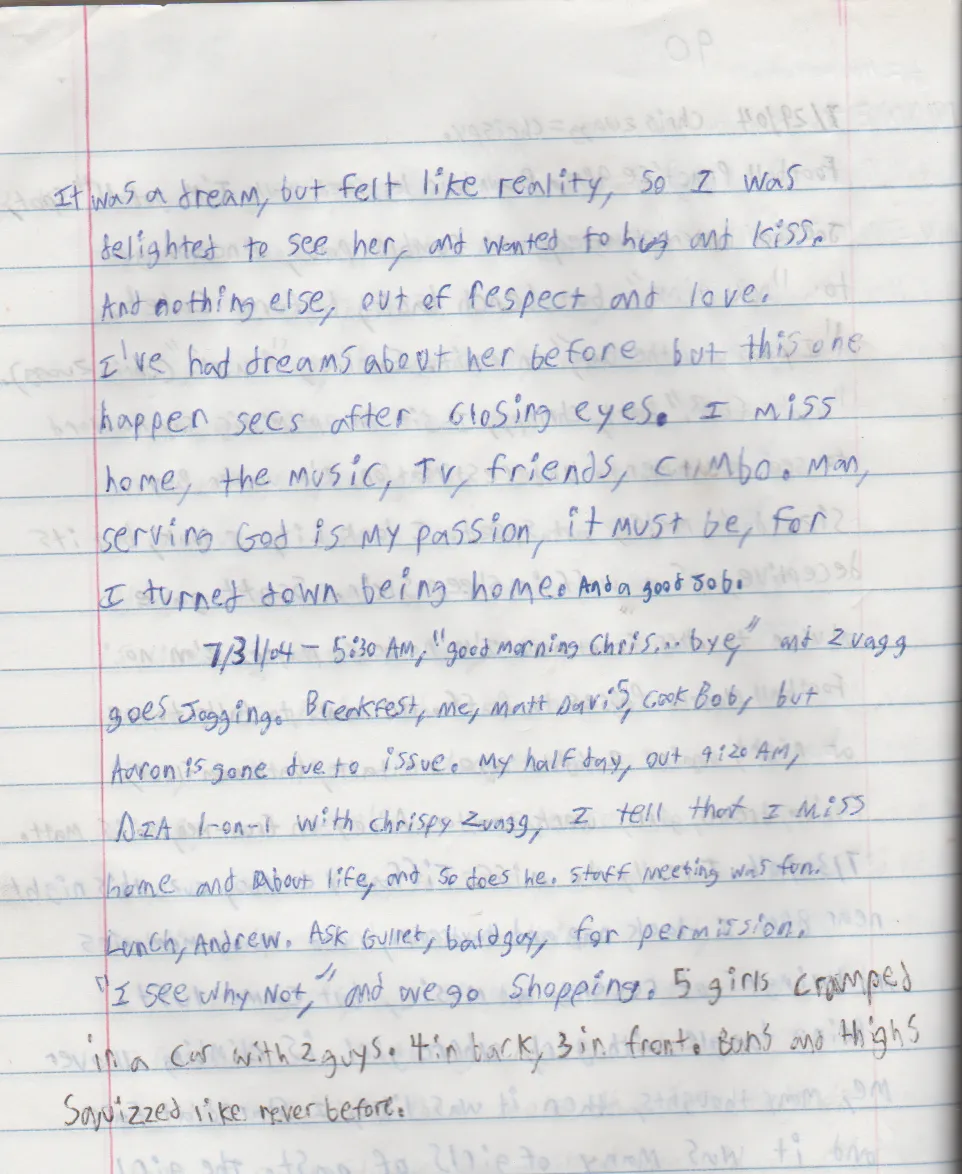 It was a dream, but felt like reality, so I was
delighted to see her, and wanted to hug and kiss.
And nothing else, out of respect and love.
I've had dreams about her before but this one
happen secs after closing eyes. I miss
home, the music, TV, friends, Cumbo. Man,
serving God is my passion, it must be, for
I turned down being home. And a good Job.
7/31/04 - 5:30 AM, "good morning Chris... bye," and Zuagg
goes Jogging. Breakfest, me, Matt Davis, Cook Bob, but
Aaron is gone due to issue. My half day, out 9:20 AM,
DIA 1-on-1 with Chrispy Zuagg, I tell that I miss
home and About life, and so does he. Staff meeting was fun.
Lunch, Andrew. Ask Gullet, bald guy, for permission.
"I see why Not," and we go Shopping. 5 girls cramped
in a car with 2 guys. 4 in back, 3 in front. Buns and thighs
Squizzed like never before.